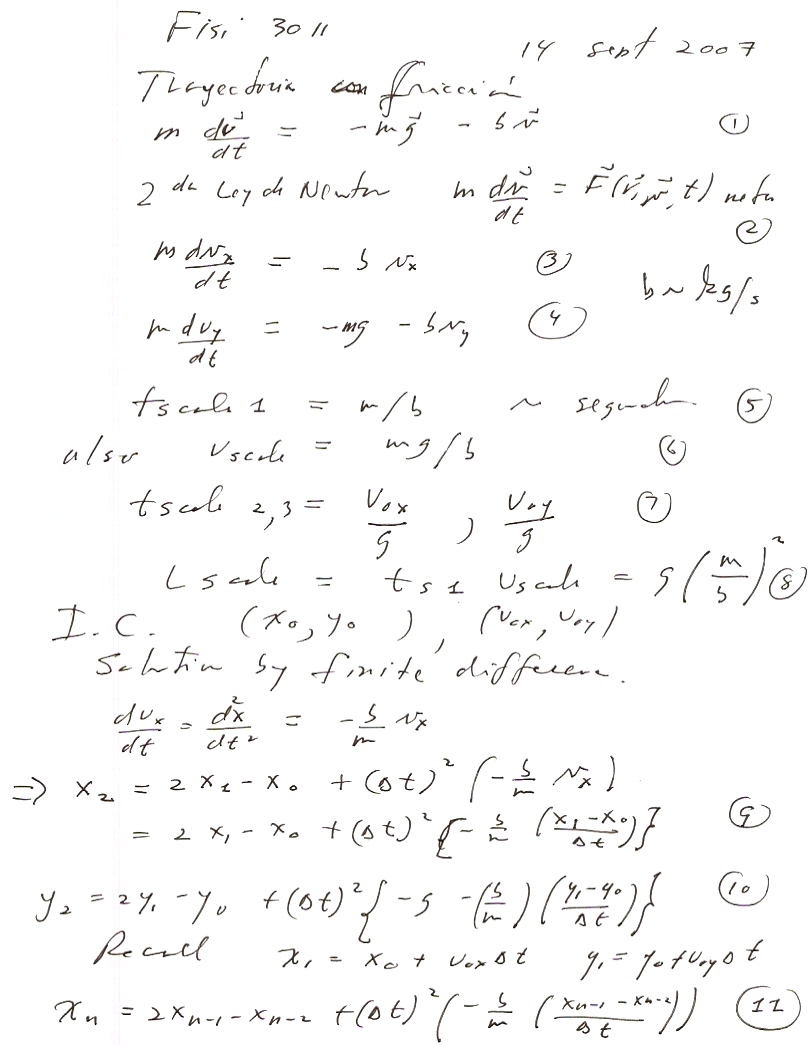 Fisi 3011
14 sept 2007
Trayectoria con fricción
m dv⃗/dt = -mg⃗ - bv⃗ (1)
2da Ley de Newton m dv⃗/dt = F⃗(r⃗, v⃗, t) neta (2)
m dvx/dt = - b vx (3)
b ~ kg/s
m dvy/dt = -mg - bvy (4)
tscale 1 = m/b ~ segundos (5)
also vscale = mg/b (6)
tscale 2,3 = Vox/g , Voy/g (7)
Lscale = ts1 Uscale = g(m/b)² (8)
I.C. (x₀, y₀), (vox, voy)
Solution by finite difference.
dvx/dt = d²x/dt² = -b/m vx
=> x₂ = 2x₁ - x₀ + (Δt)² (-b/m vx)
= 2x₁ - x₀ + (Δt)² {-b/m ((x₁-x₀)/Δt)} (9)
y₂ = 2y₁ - y₀ + (Δt)² {-g -(b/m)((y₁-y₀)/Δt)} (10)
Recall x₁ = x₀ + voxΔt y₁ = y₀ + voyΔt
xn = 2xn-1 - xn-2 + (Δt)² (-b/m ((xn-1 - xn-2)/Δt)) (11)